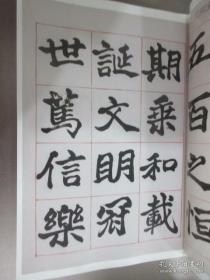 五百之恒
期乘和載
誕文明冠
世篤信樂